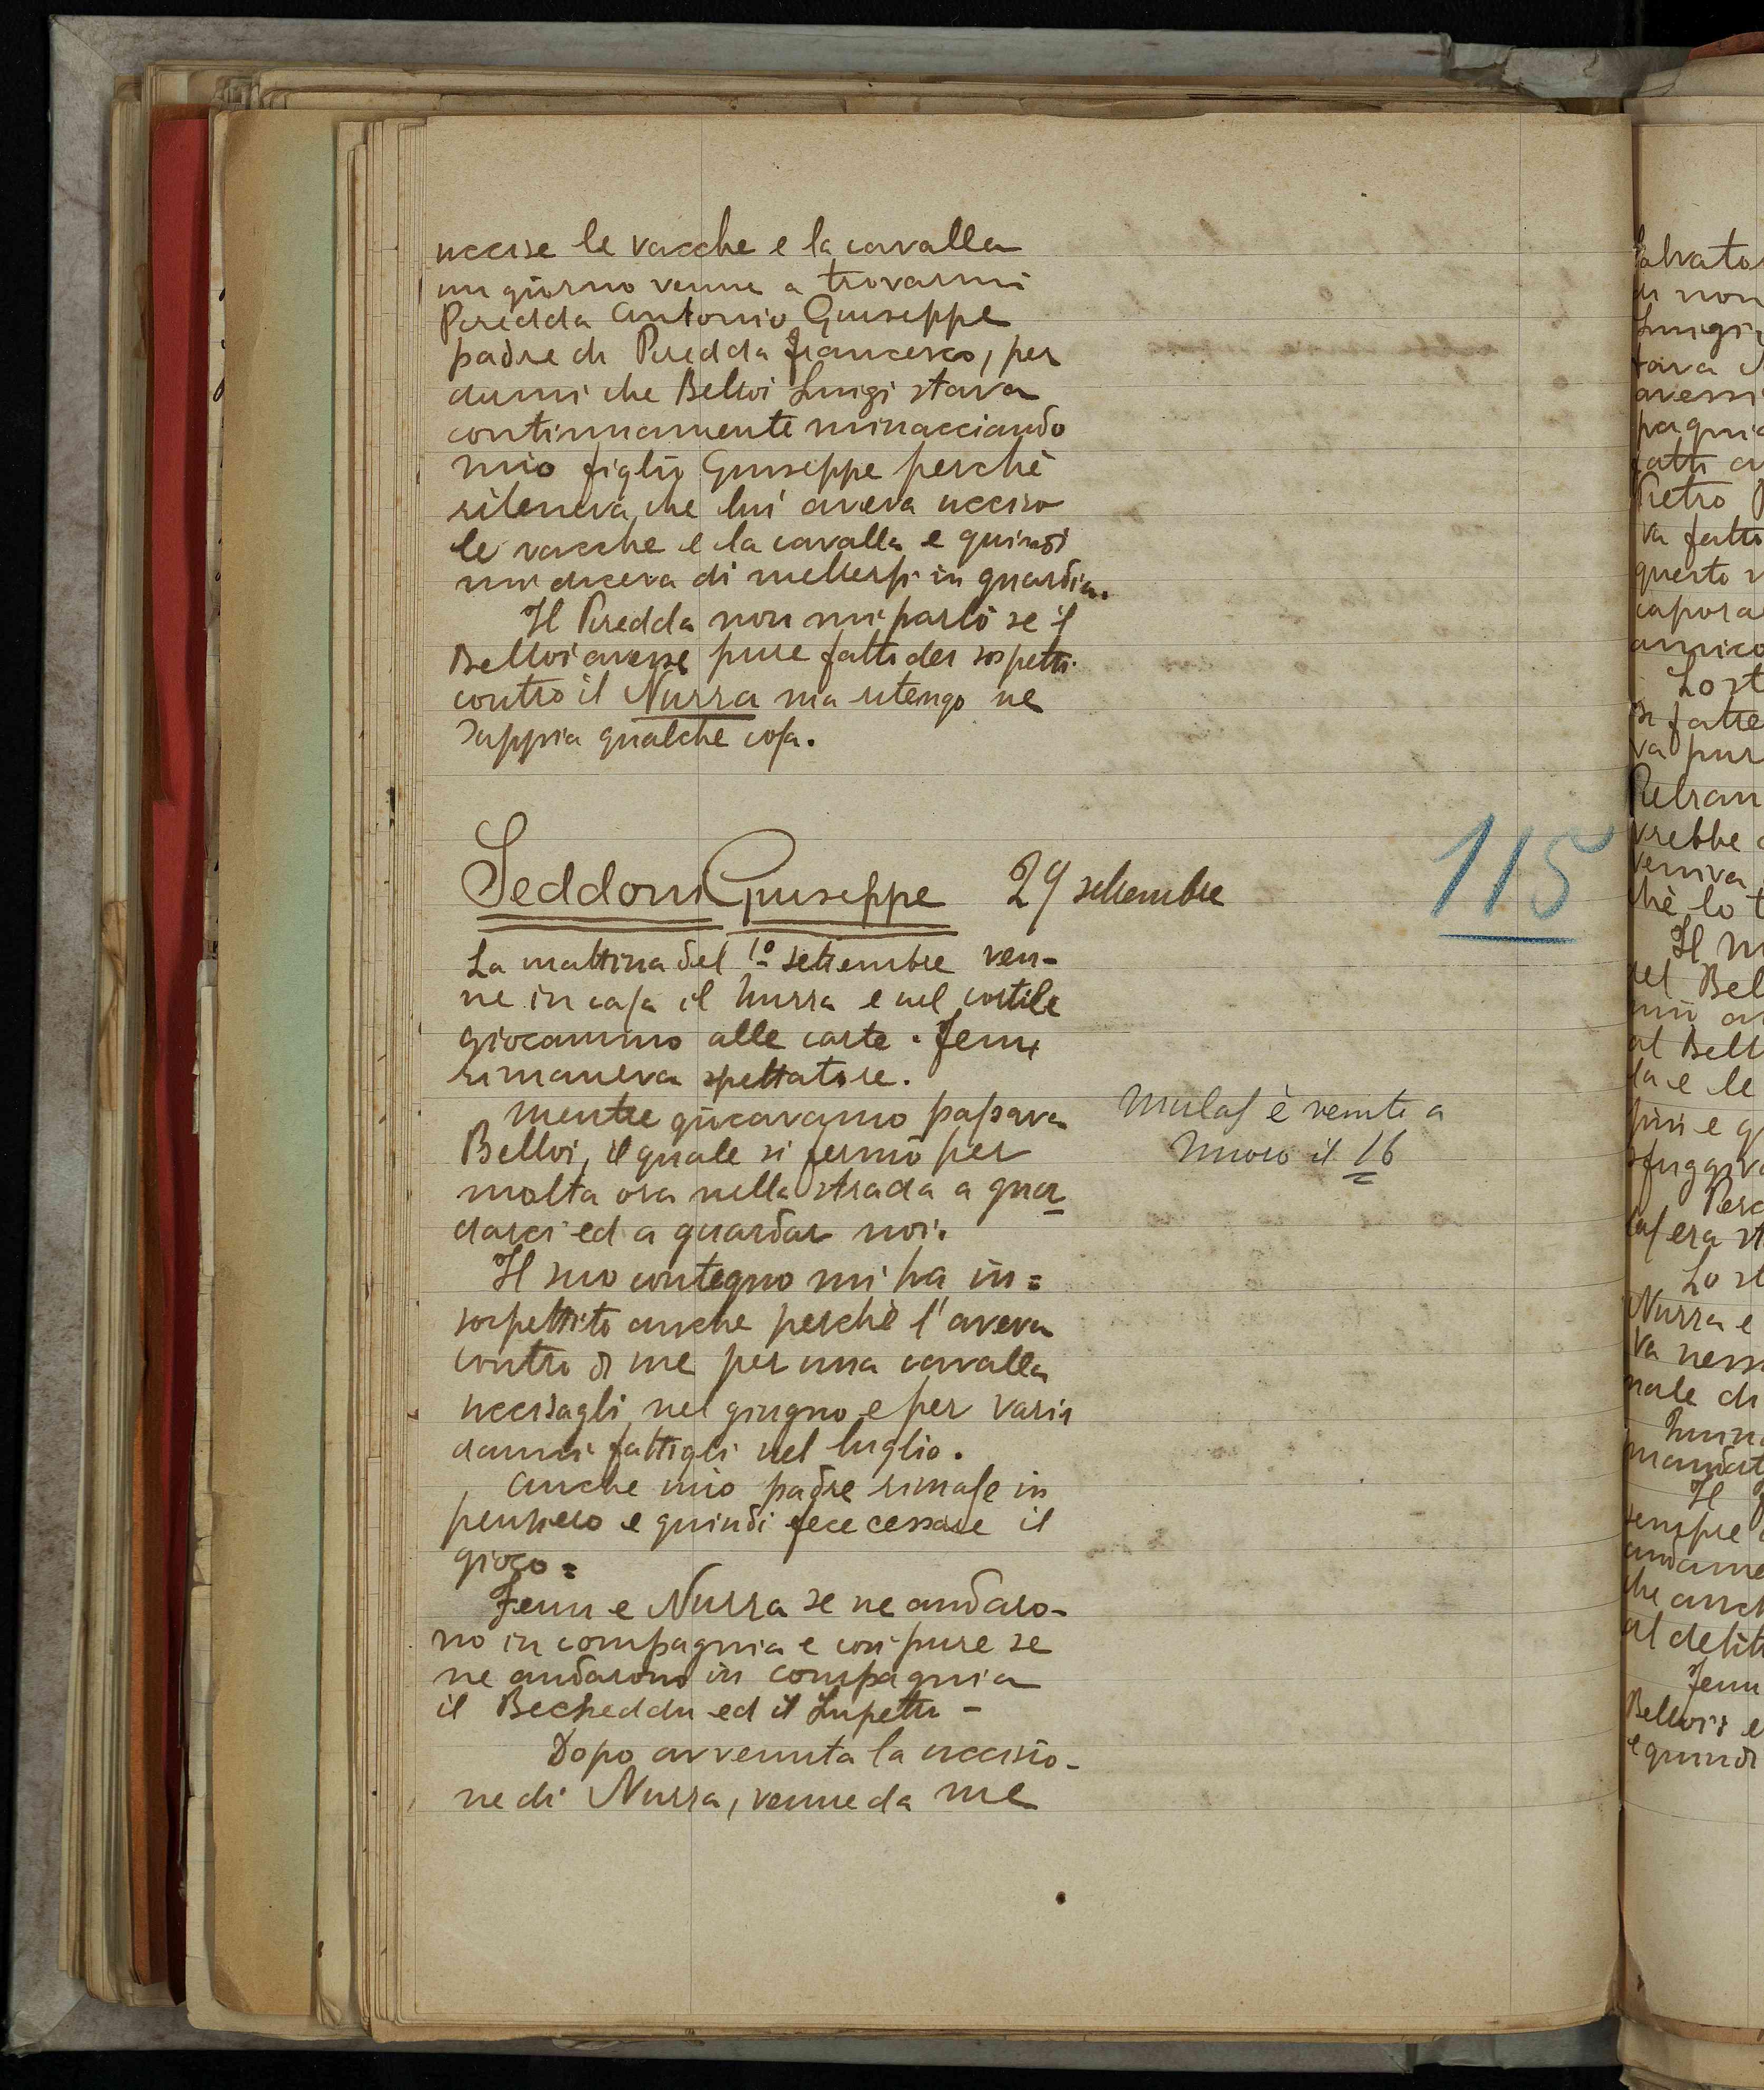 uccise le vacche e la cavalla
un giorno venne a trovarmi
Piredda Antonio Giuseppe
padre di Piredda Francesco, per
dirmi che Belloi Luigi stava
continuamente minacciando
mio figlio Giuseppe perchè
riteneva che lui aveva ucciso
le vacche e la cavalla e quindi
mi diceva di mettersi in guardia.
Il Piredda non mi parlò se il
Belloi avesse pure fatti dei sospetti
contro il Nurra ma ritengo ne
sappia qualche cosa.
Seddoni Giuseppe 29 settembre
115
La mattina del 1º settembre ven-
ne in casa il Nurra e nel cortile
giocammo alle carte. Fenu
rimaneva spettatore.
Mentre giocavamo passava
Belloi, il quale si fermò per
molta ora nella strada a guar
darci ed a guardar noi.
Il suo contegno mi ha in=
sospettito anche perchè l'aveva
contro di me per una cavalla
uccisagli nel giugno e per varii
danni fattigli nel luglio.
Anche mio padre rimase in
pensiero e quindi fece cessare il
gioco =
Fenu e Nurra se ne andaro-
no in compagnia e così pure se
ne andarono in compagnia
il Becheddu ed il Lupettu -
Dopo avvenuta la uccisio-
ne di Nurra, venne da me
Mulas è venuto a
Nuoro il 16
di non
Luigi
Pietro
va fatto
questo
amico
Lo st
va pur
vrebbe
veniva
chè lo
Il
del Bel
al Bell
la e le
sfuggiva
Perc
Lo st
Nurra e
va ness
nale di
Il
sempre
che anch
al delit
Fenu
Belloi e
e quindi